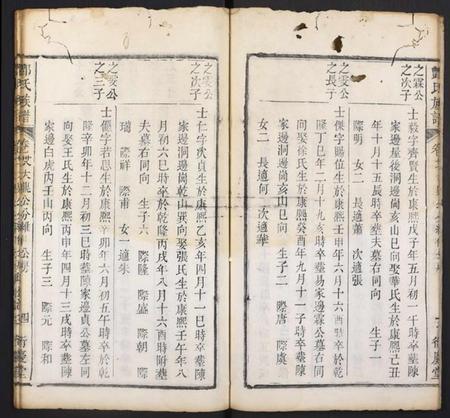 之霖公
之次子
士毅字齊賢生於康熙戊子年五月初一午時卒葬陳
家邊星徐洞邊嶺亥山巳向娶華氏生於康熙己丑
年十月十五辰時卒葬夫墓右同向 生子一
際明 女二 長適蕭 次適張
之雯公
之長子
士傑字賜位生於康熙壬申年六月十六酉時卒於乾
隆丁巳年二月十九亥時卒葬易家邊霖公墓右同
向娶徐氏生於康熙癸酉年九月十一子時卒葬陳
家洞邊嶺亥山巳向 生子二 際唐 際虞
女二 長適何 次適華
之雯公
之次子
士仁字次貞生於康熙乙亥年四月十一巳時卒葬陳
家邊洞邊嶺乾山巽向娶張氏生於康熙壬午年八
月初六巳時卒於乾隆丙戌年八月十六酉時附葬
夫墓右同向 生子六 際隆 際盛 際朝 際
瑞 際祥 際甫 女一適朱
之雯公
之三子
士儒字若思生於康熙辛卯年六月初五午時卒於乾
隆辛卯年十二月初三巳時葬陳家邊貞公墓左同
向娶王氏生於康熙丙申年四月十三戌時卒葬陳
家邊白虎丙壬山丙向 生子三 際元 際和
四